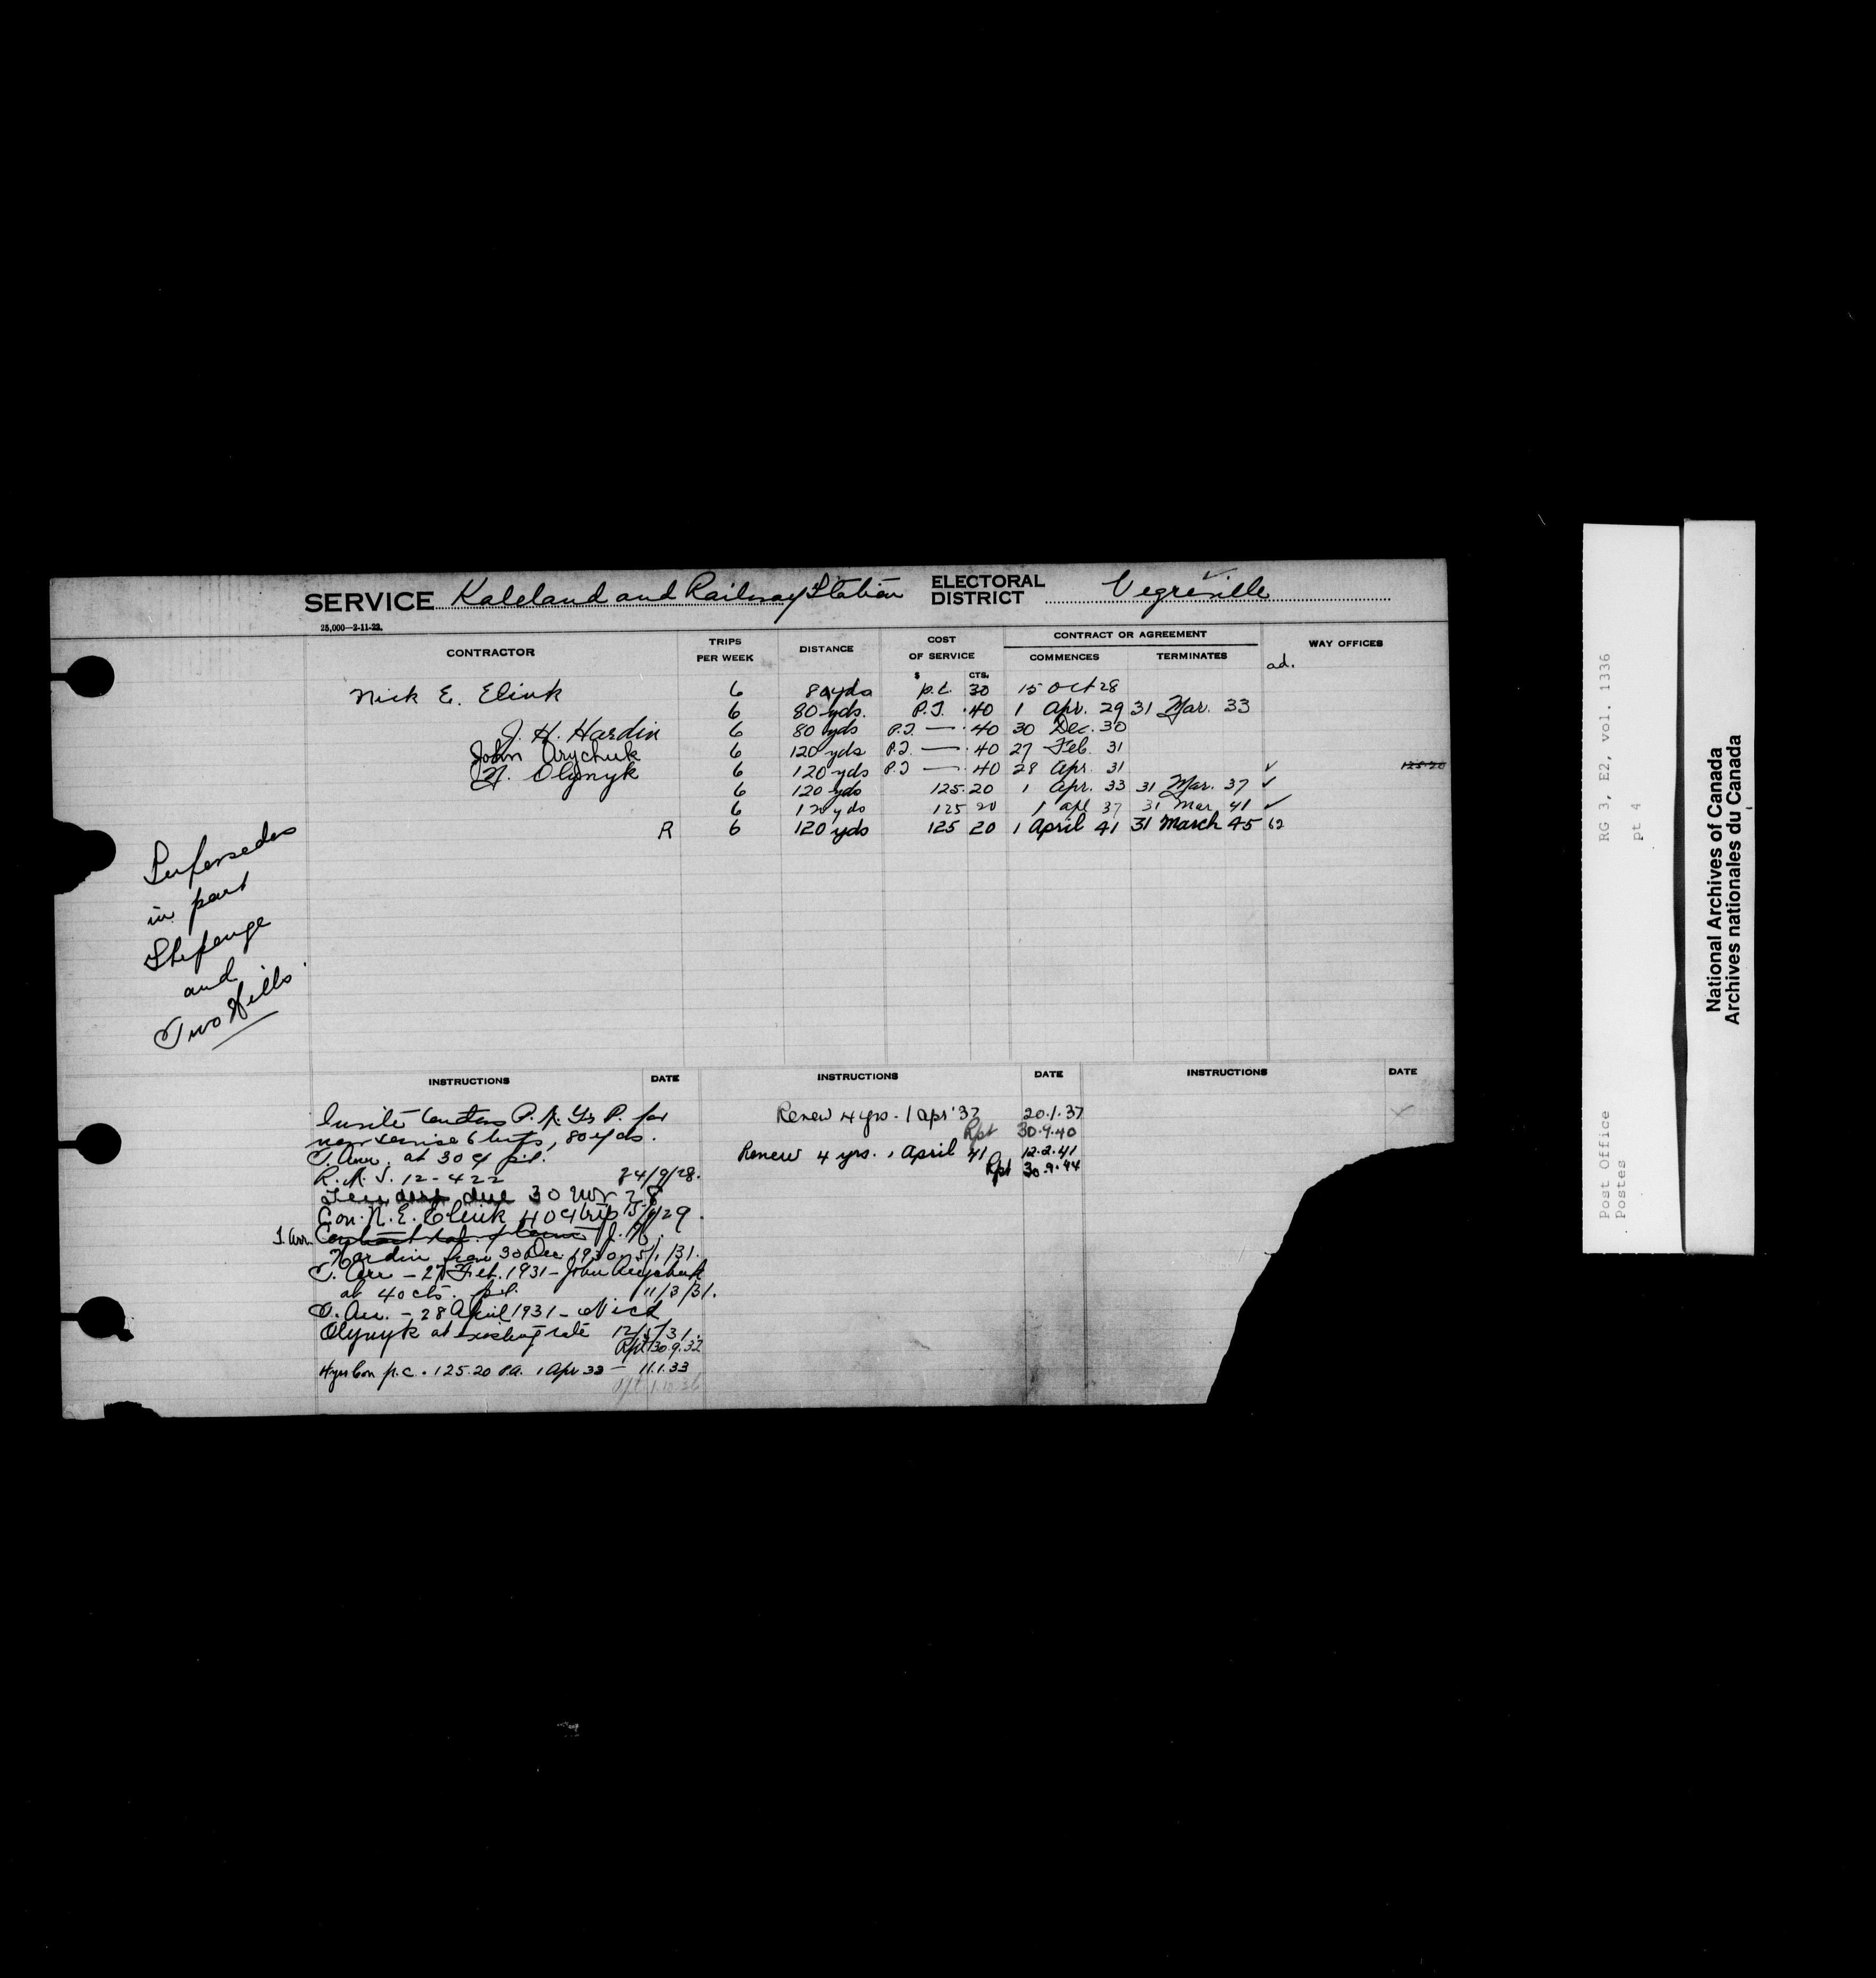 SERVICE Kaleland and Railway Station ELECTORAL DISTRICT Vegreville
25,000—2-11-22.
CONTRACTOR TRIPS PER WEEK DISTANCE COST OF SERVICE CONTRACT OR AGREEMENT COMMENCES TERMINATES WAY OFFICES
$ CTS. ad.
Nick E. Elink 6 80 yds p.t. 30 15 Oct 28
6 80 yds. P.T. .40 1 Apr. 29 31 Mar. 33
J. H. Hardin 6 80 yds P.T. — .40 30 Dec. 30
John Arychuk 6 120 yds P.T. — .40 27 Feb. 31
N. Olynyk 6 120 yds P.T — .40 28 Apr. 31 ✓ 125.20
6 120 yds 125.20 1 Apr. 33 31 Mar. 37 ✓
6 120 yds 125 20 1 apl 37 31 Mar 41 ✓
R 6 120 yds 125 20 1 April 41 31 March 45 62
Supersedes
in part
and
Two Hills
INSTRUCTIONS DATE INSTRUCTIONS DATE INSTRUCTIONS DATE
Invite tenders P. for
new service 6 trips, 80 yds.
T. Arr. at 30¢ p.t.
R. M. S. 12-422 24/9/28.
due 30 Nov 28
Con. N. E. Elink 40¢ trip 29
T. Arr. J. H.
Hardin from 30 Dec. 1930. 5/1/31.
T. Arr — 27 Feb. 1931 — John Arychuk
at 40 cts. p.t. 11/3/31.
T. Arr. — 28 April 1931 — Nick
Olynyk at existing rate 12/5/31.
Rpt 30.9.32
4 yrs Con p.c. . 125.20 P.A. 1 Apr 33 — 11.1.33
1.10.36
Renew 4 yrs. 1 apr '37 20.1.37
Rpt 30.9.40
Renew 4 yrs. 1 April 41 12.2.41
Rpt 30.9.44
Post Office
Postes
RG 3, E2, vol. 1336
pt 4
National Archives of Canada
Archives nationales du Canada